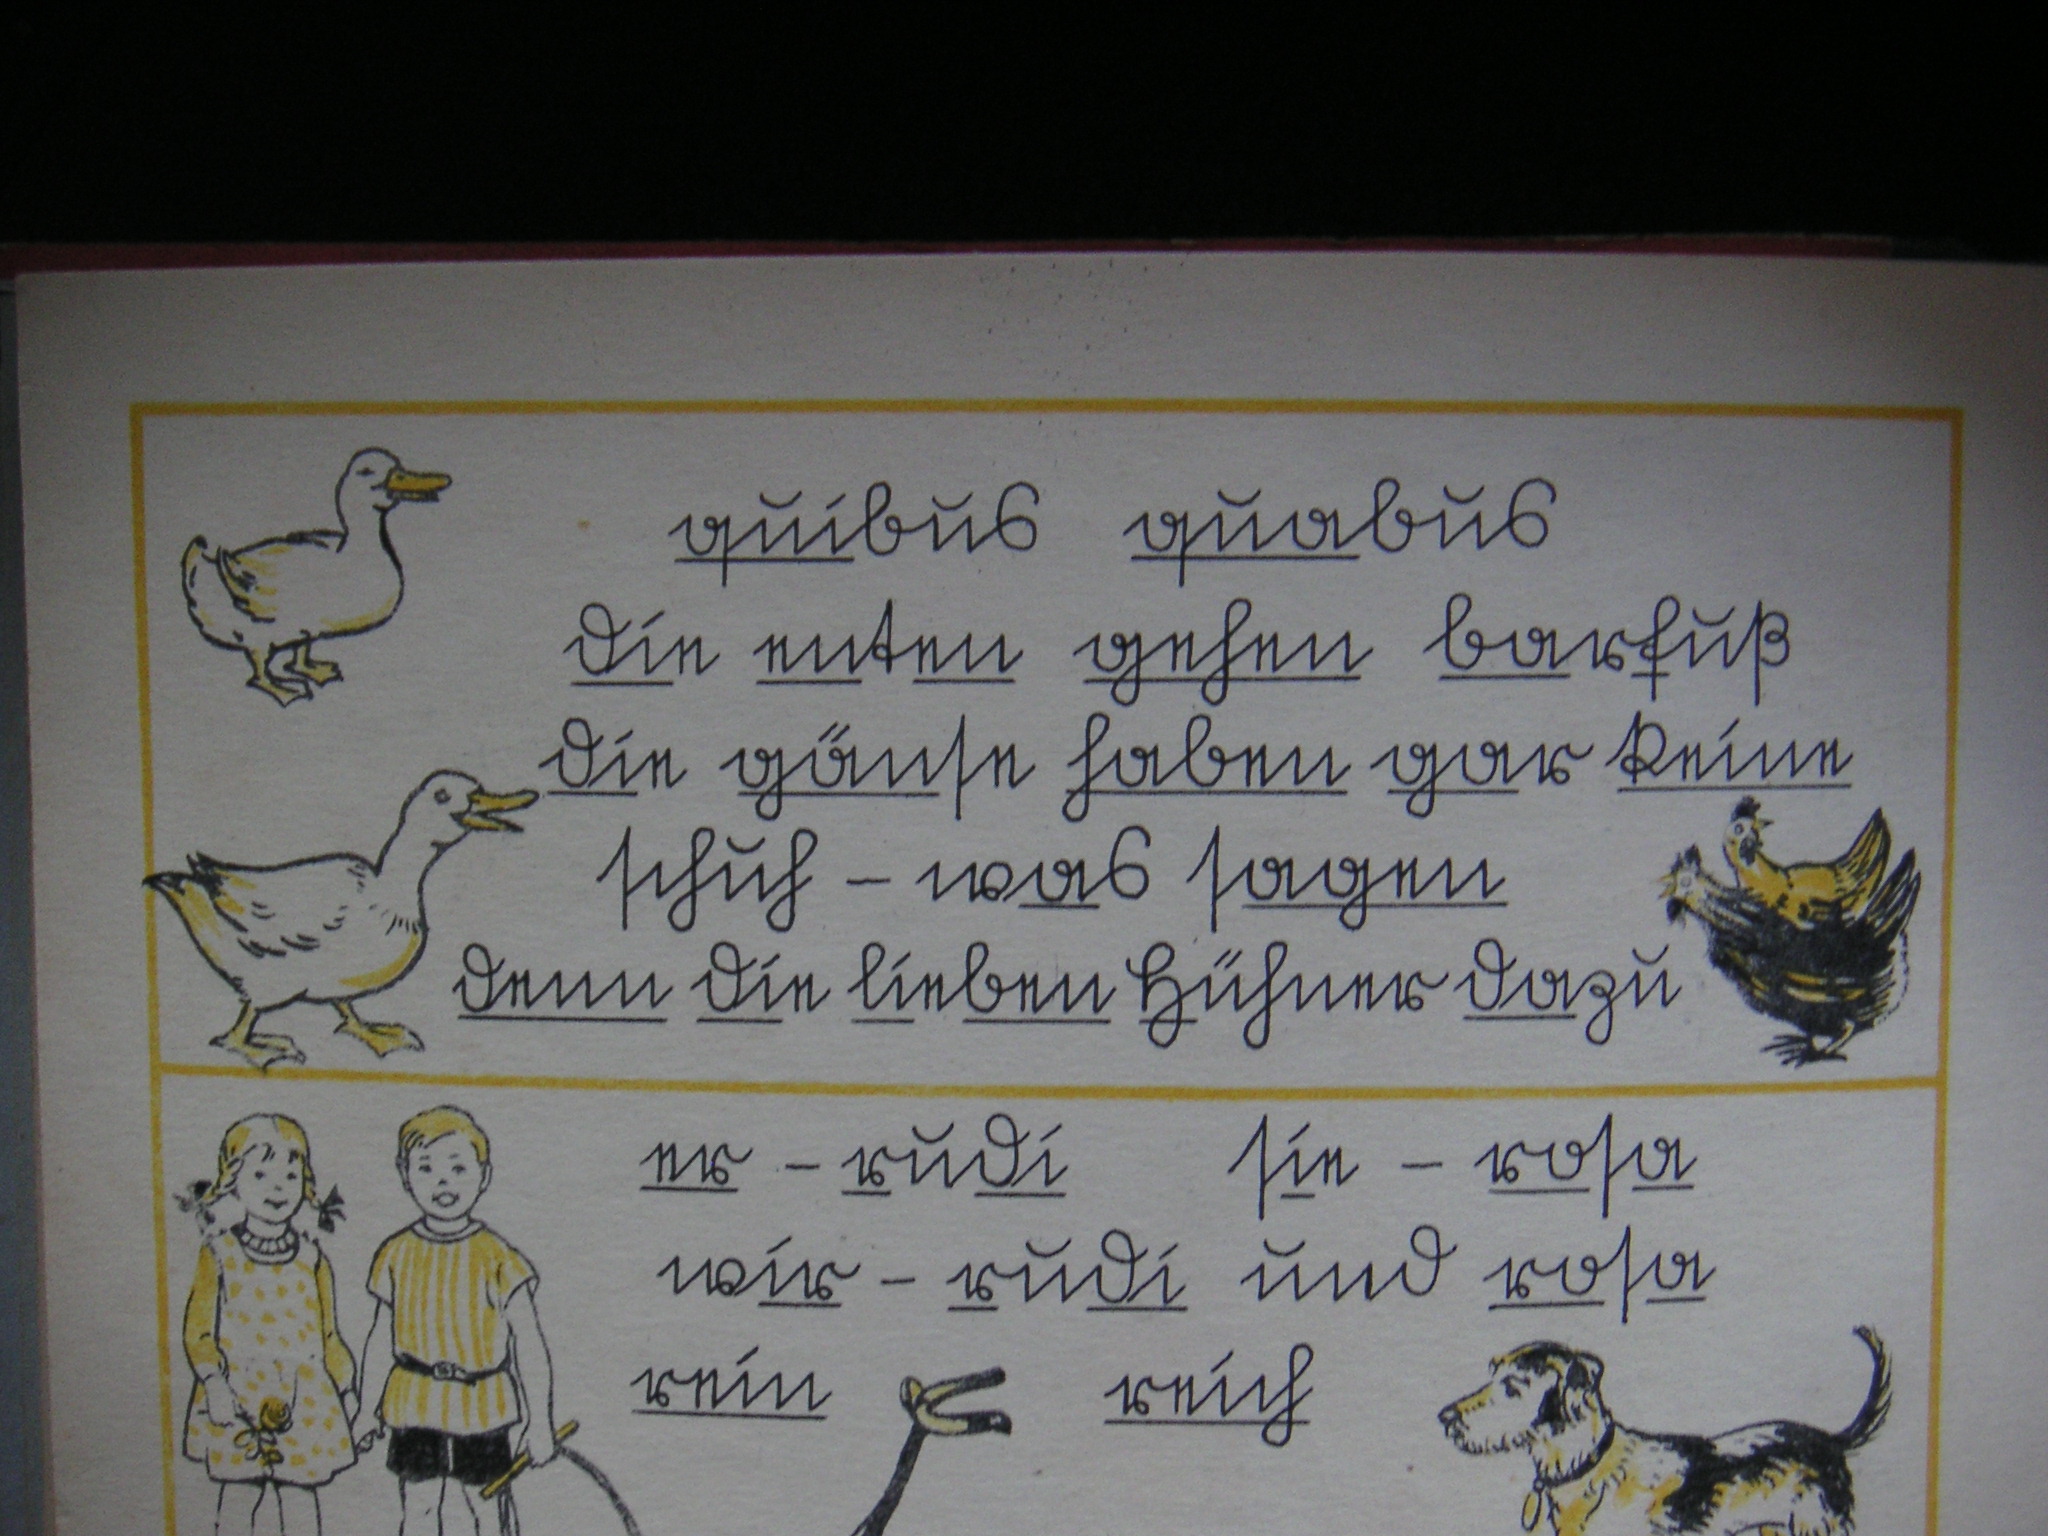 quibus quabus
die enten gehen barfuß
die gänse haben gar keine
schuh – was sagen
denn die lieben Hühner dazu
er – rudi sie – rosa
wir – rudi und rosa
rein reich